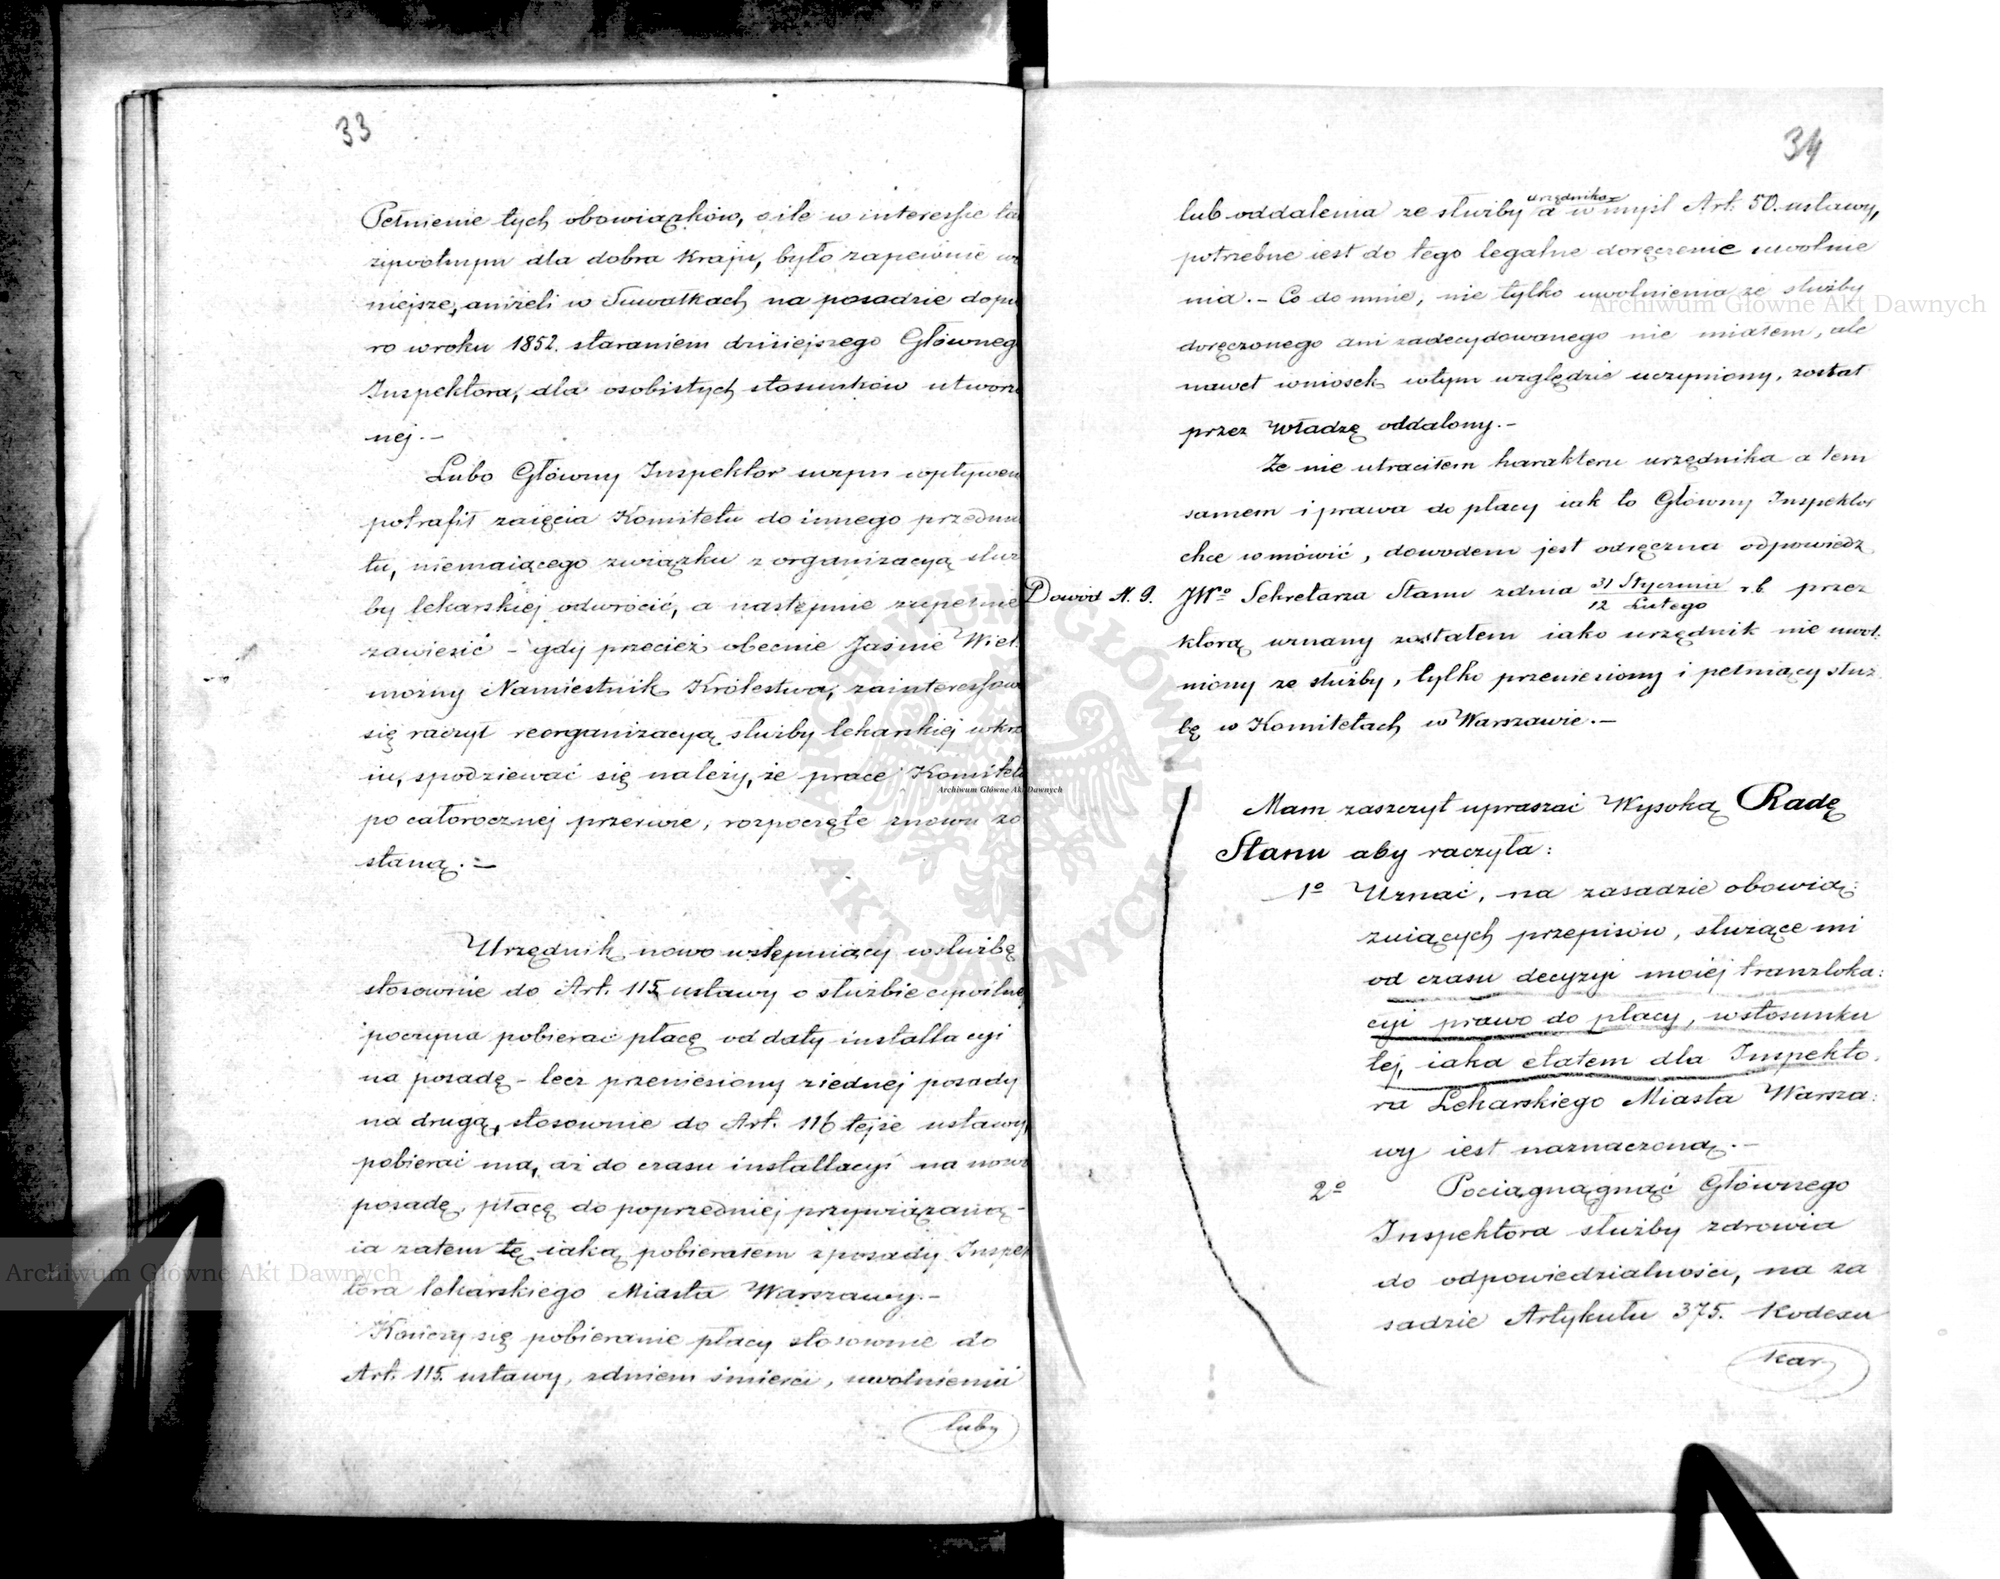 33
Pełnienie tych obowiązków, o ile w interessie ta
zipodmym dla dobra Kraju, było zapewnie wa
niejsze, aniżeli w Suwałkach na posadzie dopie
ro w roku 1852. staraniem dzisiejszego Główneg
Inspektora, dla osobistych stosunków utworzo
nej.–
Lubo Główny Inspektor swym wpływem
potrafił zaięcia Komitetu do innego przedmio
tu, niemaiącego związku z organizacyą służ
by lekarskiej odwrócić, a następnie zupełnie
zawiesić – gdy przecież obecnie Jaśnie Wiel.
możny Namiestnik Królestwa, zainteressow
się raczył reorganizacyą służby lekarskiej w kra
iu, spodziewać się należy, że prace Komitetu
po całorocznej przerwie, rozpoczęte znowu zo
staną.–
Urzędnik nowo wstępuiący w służbę
stosownie do Art. 115 ustawy o służbie cywilnej
poczyna pobierać płacę od daty installacyi
na posadę – lecz przeniesiony z iednej posady
na drugą, stosownie do Art. 116 tejże ustawy,
pobierać ma, aż do czasu installacyi na nową
posadę, płacę do poprzedniej przywiązaną –
ia zatem tę iaką pobierałem z posady Inspek
tora lekarskiego Miasta Warszawy.–
Kończy się pobieranie płacy stosownie do
Art. 115. ustawy, z dniem śmierci, uwolnienia
luby
34
lub oddalenia ze służby urzędnika a w myśl Art. 50. ustawy,
potrzebne iest do tego legalne doręczenie uwolnie
nia.– Co do mnie, nie tylko uwolnienia ze służby
doręczonego ani zadecydowanego nie miałem, ale
nawet wniosek w tym względzie uczyniony, został
przez Władzę oddalony.–
Że nie utraciłem harakteru urzędnika a tem
samem i prawa do płacy iak to Główny Inspektor
chce wmówić, dowodem jest odręczna odpowiedź
Dowód N. 9. JWº Sekretarza Stanu z dnia 31 Stycznia / 12 Lutego r. b. przez
którą uznany zostałem iako urzędnik nie uwol.
niony ze służby, tylko przeniesiony i pełniący służ.
bę w Komitetach w Warszawie.–
Mam zaszczyt upraszać Wysoką Radę
Stanu aby raczyła:
1º Uznać, na zasadzie obowią:
zuiących przepisów, służące mi
od czasu decyzyi moiej tranzloka:
cyi prawo do płacy, w stosunku
tej, iaka etatem dla Inspekto.
ra Lekarskiego Miasta Warsza:
wy iest naznaczoną.–
2º Pociągnągnąć Głównego
Inspektora służby zdrowia
do odpowiedzialności, na za
sadzie Artykułu 375. Kodexu
kar
Archiwum Główne Akt Dawnych
Archiwum Główne Akt Dawnych
Archiwum Główne Akt Dawnych
ARCHIWUM GŁÓWNE AKT DAWNYCH